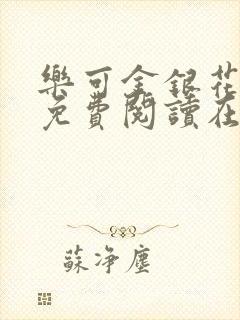 樂可金銀花
免費閱讀在
蘇净塵